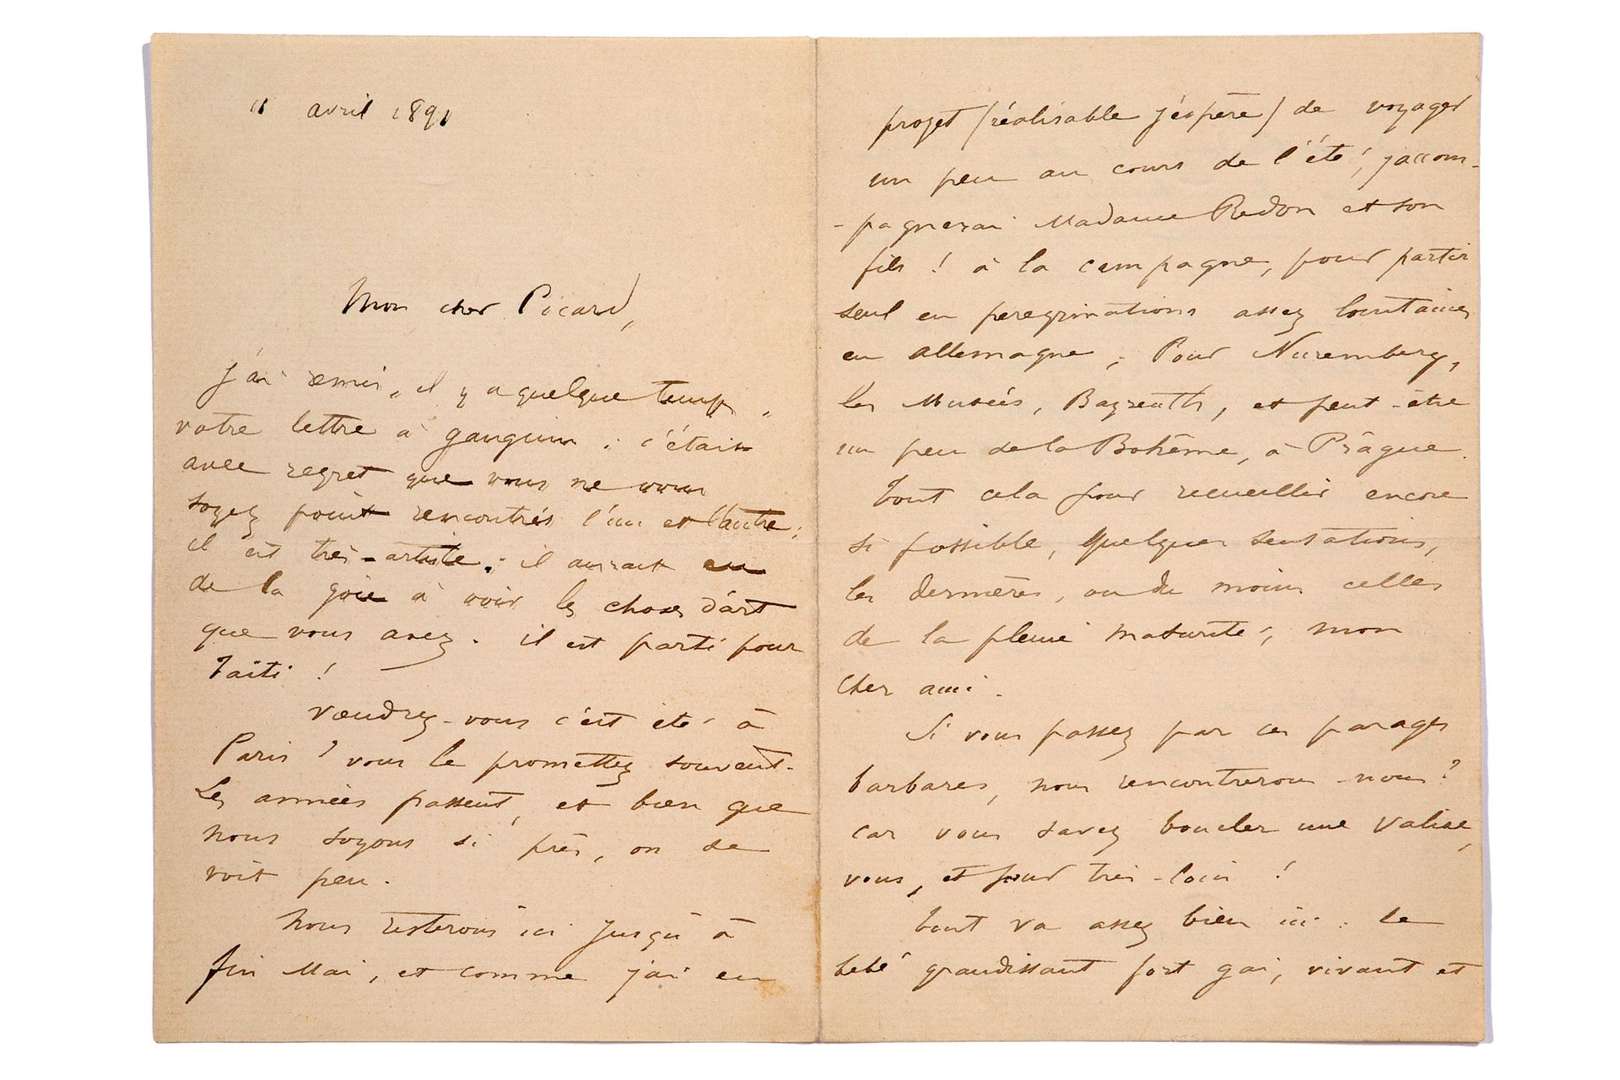 11 avril 1891
Mon cher Picard,
j'ai remis, il y a quelque temps,
votre lettre à gauguin : c'était
avec regret que vous ne vous
soyez point rencontrés l'un et l'autre ;
il est très-artiste ; il aurait eu
de la joie à voir les choses d'art
que vous avez. il est parti pour
Taïti !
Viendrez-vous c'est été à
Paris ? vous le promettez souvent.
Les années passent, et bien que
nous soyons si près, on se
voit peu.
Nous resterons ici jusqu'à
fin Mai, et comme j'ai en
projet (réalisable j'espère) de voyager
un peu au cours de l'été, j'accom-
-pagnerai Madame Redon et son
fils ! à la campagne, pour partir
seul en peregrinations assez lointaines
en allemagne ; Pour Nuremberg,
les Musées, Bayreuth, et peut-être
un peu de la Bohême, à Prague.
Tout cela pour recueillir encore
si possible, quelques sensations,
les dernières, ou du moins celles
de la pleine maturité, mon
cher ami.
Si vous passez par ces parages
barbares, nous rencontrerons-nous ?
car vous savez boucler une valise,
vous, et pour très-loin !
tout va assez bien ici : le
bébé grandissant fort gai, vivant et